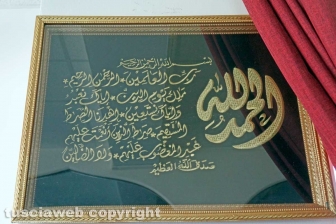 بسم الله الرحمن الرحيم
الحمد لله
رب العالمين الرحمن الرحيم
ملك يوم الدين إياك نعبد
وإياك نستعين اهدنا الصراط
المستقيم صراط الذين أنعمت عليهم
غير المغضوب عليهم ولا الضالين
صدق الله العظيم
tusciaweb copyright